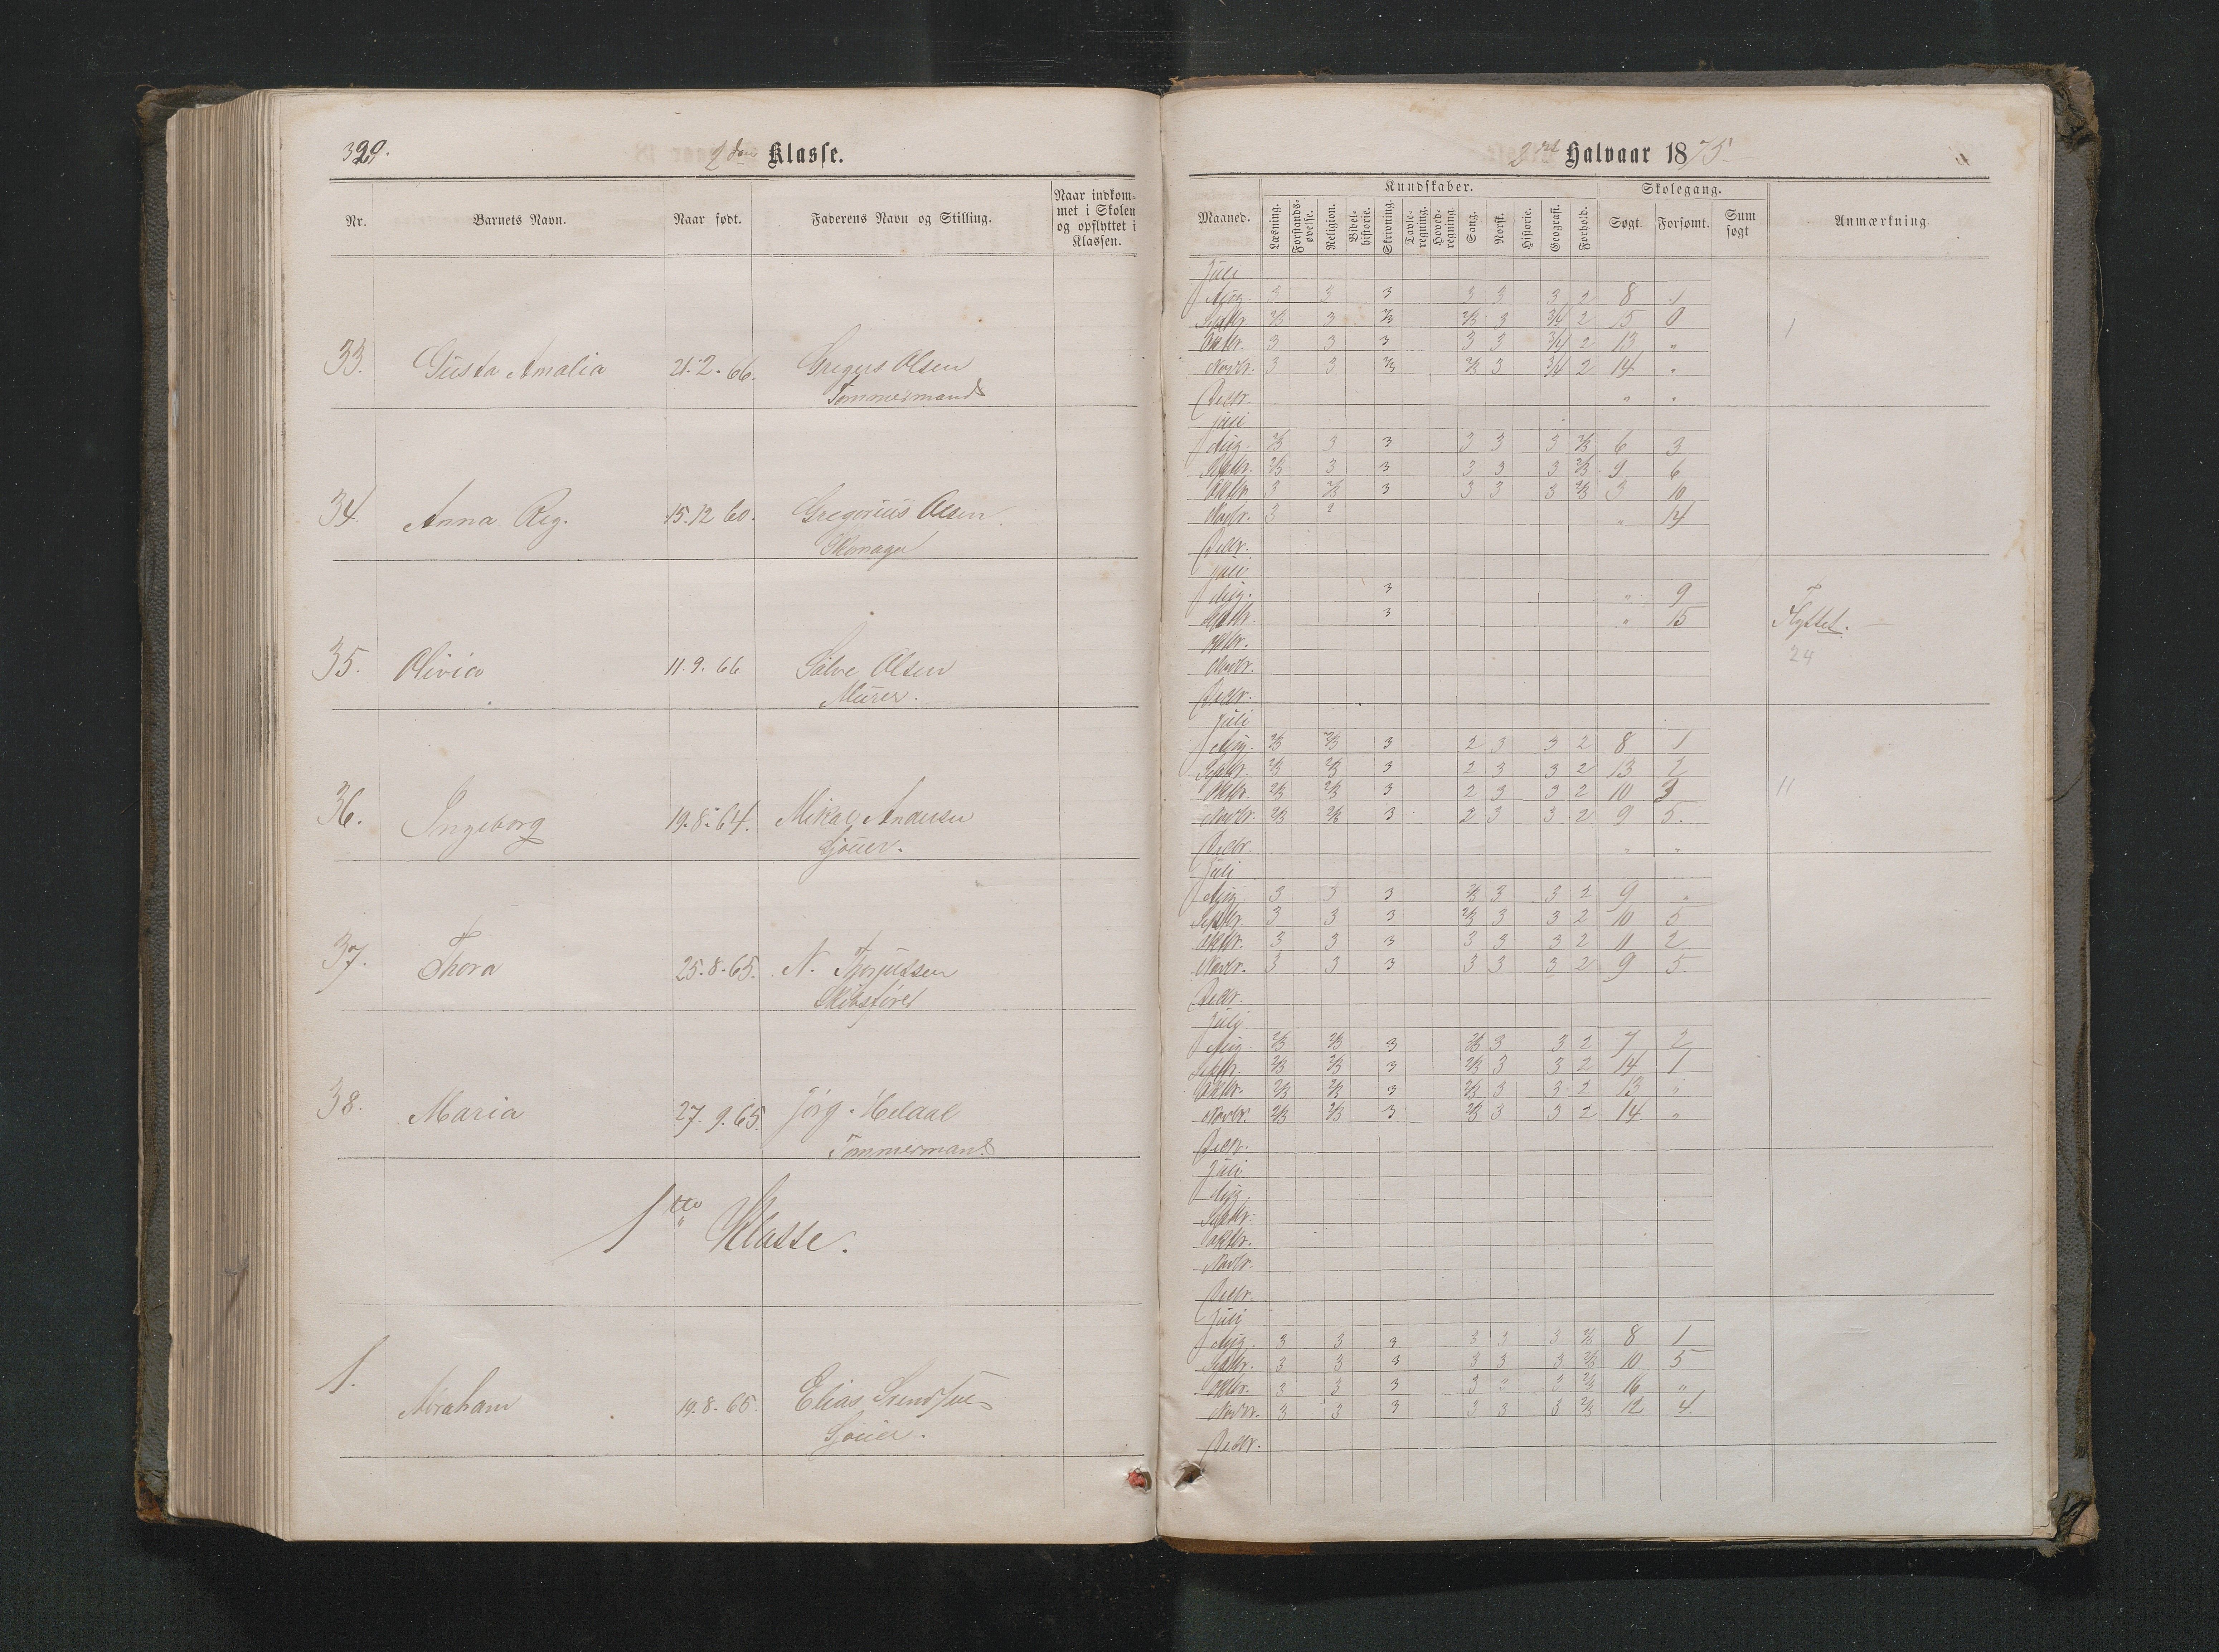 329.
2den Klasse.
Nr. Barnets Navn. Naar født. Faderens Navn og Stilling. Naar indkommet i Skolen og opflyttet i Klassen.
33. Gusta Amalia 21.2.66. Gregus Olsen
Tømmermand
34. Anna Reg. 15.12.60. Gregorius Olsen
Skomager
35. Olivia 11.9.66 Salve Olsen
Murer.
36. Ingeborg 19.8.64. Mikal Andersen
Sjöuer.
37. Thora 25.8.65. N. Torjussen
Skibsfører
38. Maria 27.9.65. Jörg. Heldal
Tømmermand
1ste Klasse.
1. Abraham 19.8.65. Elias Svendsen
Sjouer.
2det Halvaar 1875.
Kundskaber. Skolegang.
Maaned. Læsning. Forstandsøvelse. Religion. Bibelhistorie. Skrivning. Tavleregning. Hovedregning Sang. Norsk. Historie. Geografi. Forhold. Søgt. Forsømt. Sum søgt Anmærkning
Juli
Aug. 3 3 3 3 3 3 2 8 1
Septbr. 2/3 3 2/3 2/3 3 3/4 2 15 0
Oktbr. 3 3 3 3 3 3/4 2 13 „
Novbr. 3 3 2/3 2/3 3 3/4 2 14 „
Decbr. „ „
1
Juli
Aug. 2/3 3 3 3 3 3 2/3 6 3
Septbr. 2/3 3 3 3 3 3 2/3 9 6
Oktbr. 3 2/3 3 3 3 3 2/3 3 10
Novbr. 3 „ 14
Decbr.
Juli
Aug. 3 „ 9
Septbr. 3 „ 15
Oktbr.
Novbr.
Decbr.
Flyttet.
24
Juli
Aug. 2/3 2/3 3 2 3 3 2 8 1
Septbr. 2/3 2/3 3 2 3 3 2 13 2
Oktbr. 2/3 2/3 3 2 3 3 2 10 3
Novbr. 2/3 2/3 3 2 3 3 2 9 5.
Decbr. „ „
11
Juli
Aug. 3 3 3 2/3 3 3 2 9 „
Septbr. 3 3 3 2/3 3 3 2 10 5
Oktbr. 3 3 3 3 3 3 2 11 2
Novbr. 3 3 3 3 3 3 2 9 5
Decbr.
Juli
Aug. 2/3 2/3 3 2/3 3 3 2 7 2
Septbr. 2/3 2/3 3 2/3 3 3 2 14 1
Oktbr. 2/3 2/3 3 2/3 3 3 2 13 „
Novbr. 2/3 2/3 3 2/3 3 3 2 14 „
Decbr.
Juli
Aug.
Septbr.
Oktbr.
Novbr.
Decbr.
Juli
Aug. 3 3 3 3 3 3 2/3 8 1
Septbr. 3 3 3 3 3 3 2/3 10 5
Oktbr. 3 3 3 3 3 3 2/3 16 „
Novbr. 3 3 3 3 3 3 2/3 12 4
Decbr.